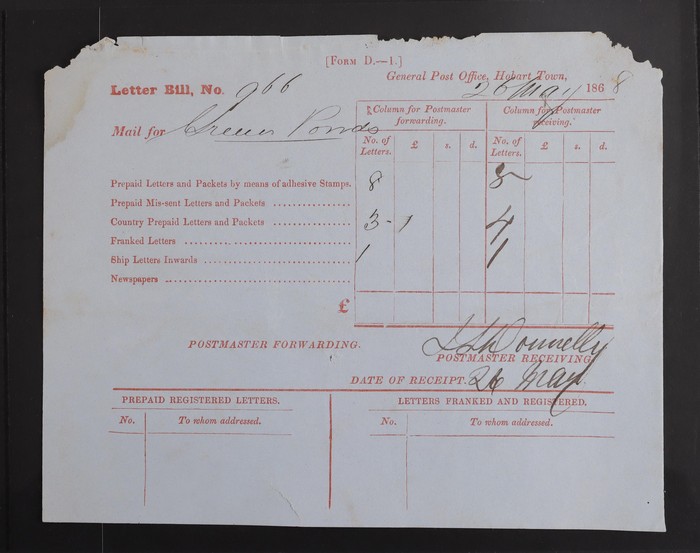 [FORM D.—1.]
General Post Office, Hobart Town,
Letter Bill, No. 966 26 May 1868
Mail for Green Ponds
Column for Postmaster forwarding. Column for Postmaster receiving.
No. of Letters. £ s. d. No. of Letters. £ s. d.
Prepaid Letters and Packets by means of adhesive Stamps. 8
Prepaid Mis-sent Letters and Packets ................
Country Prepaid Letters and Packets ................ 3-1 4
Franked Letters ................
Ship Letters Inwards ................ 1 1
Newspapers ................
£
POSTMASTER FORWARDING. Donnelly
POSTMASTER RECEIVING
DATE OF RECEIPT. 26 May.
PREPAID REGISTERED LETTERS. LETTERS FRANKED AND REGISTERED.
No. To whom addressed. No. To whom addressed.